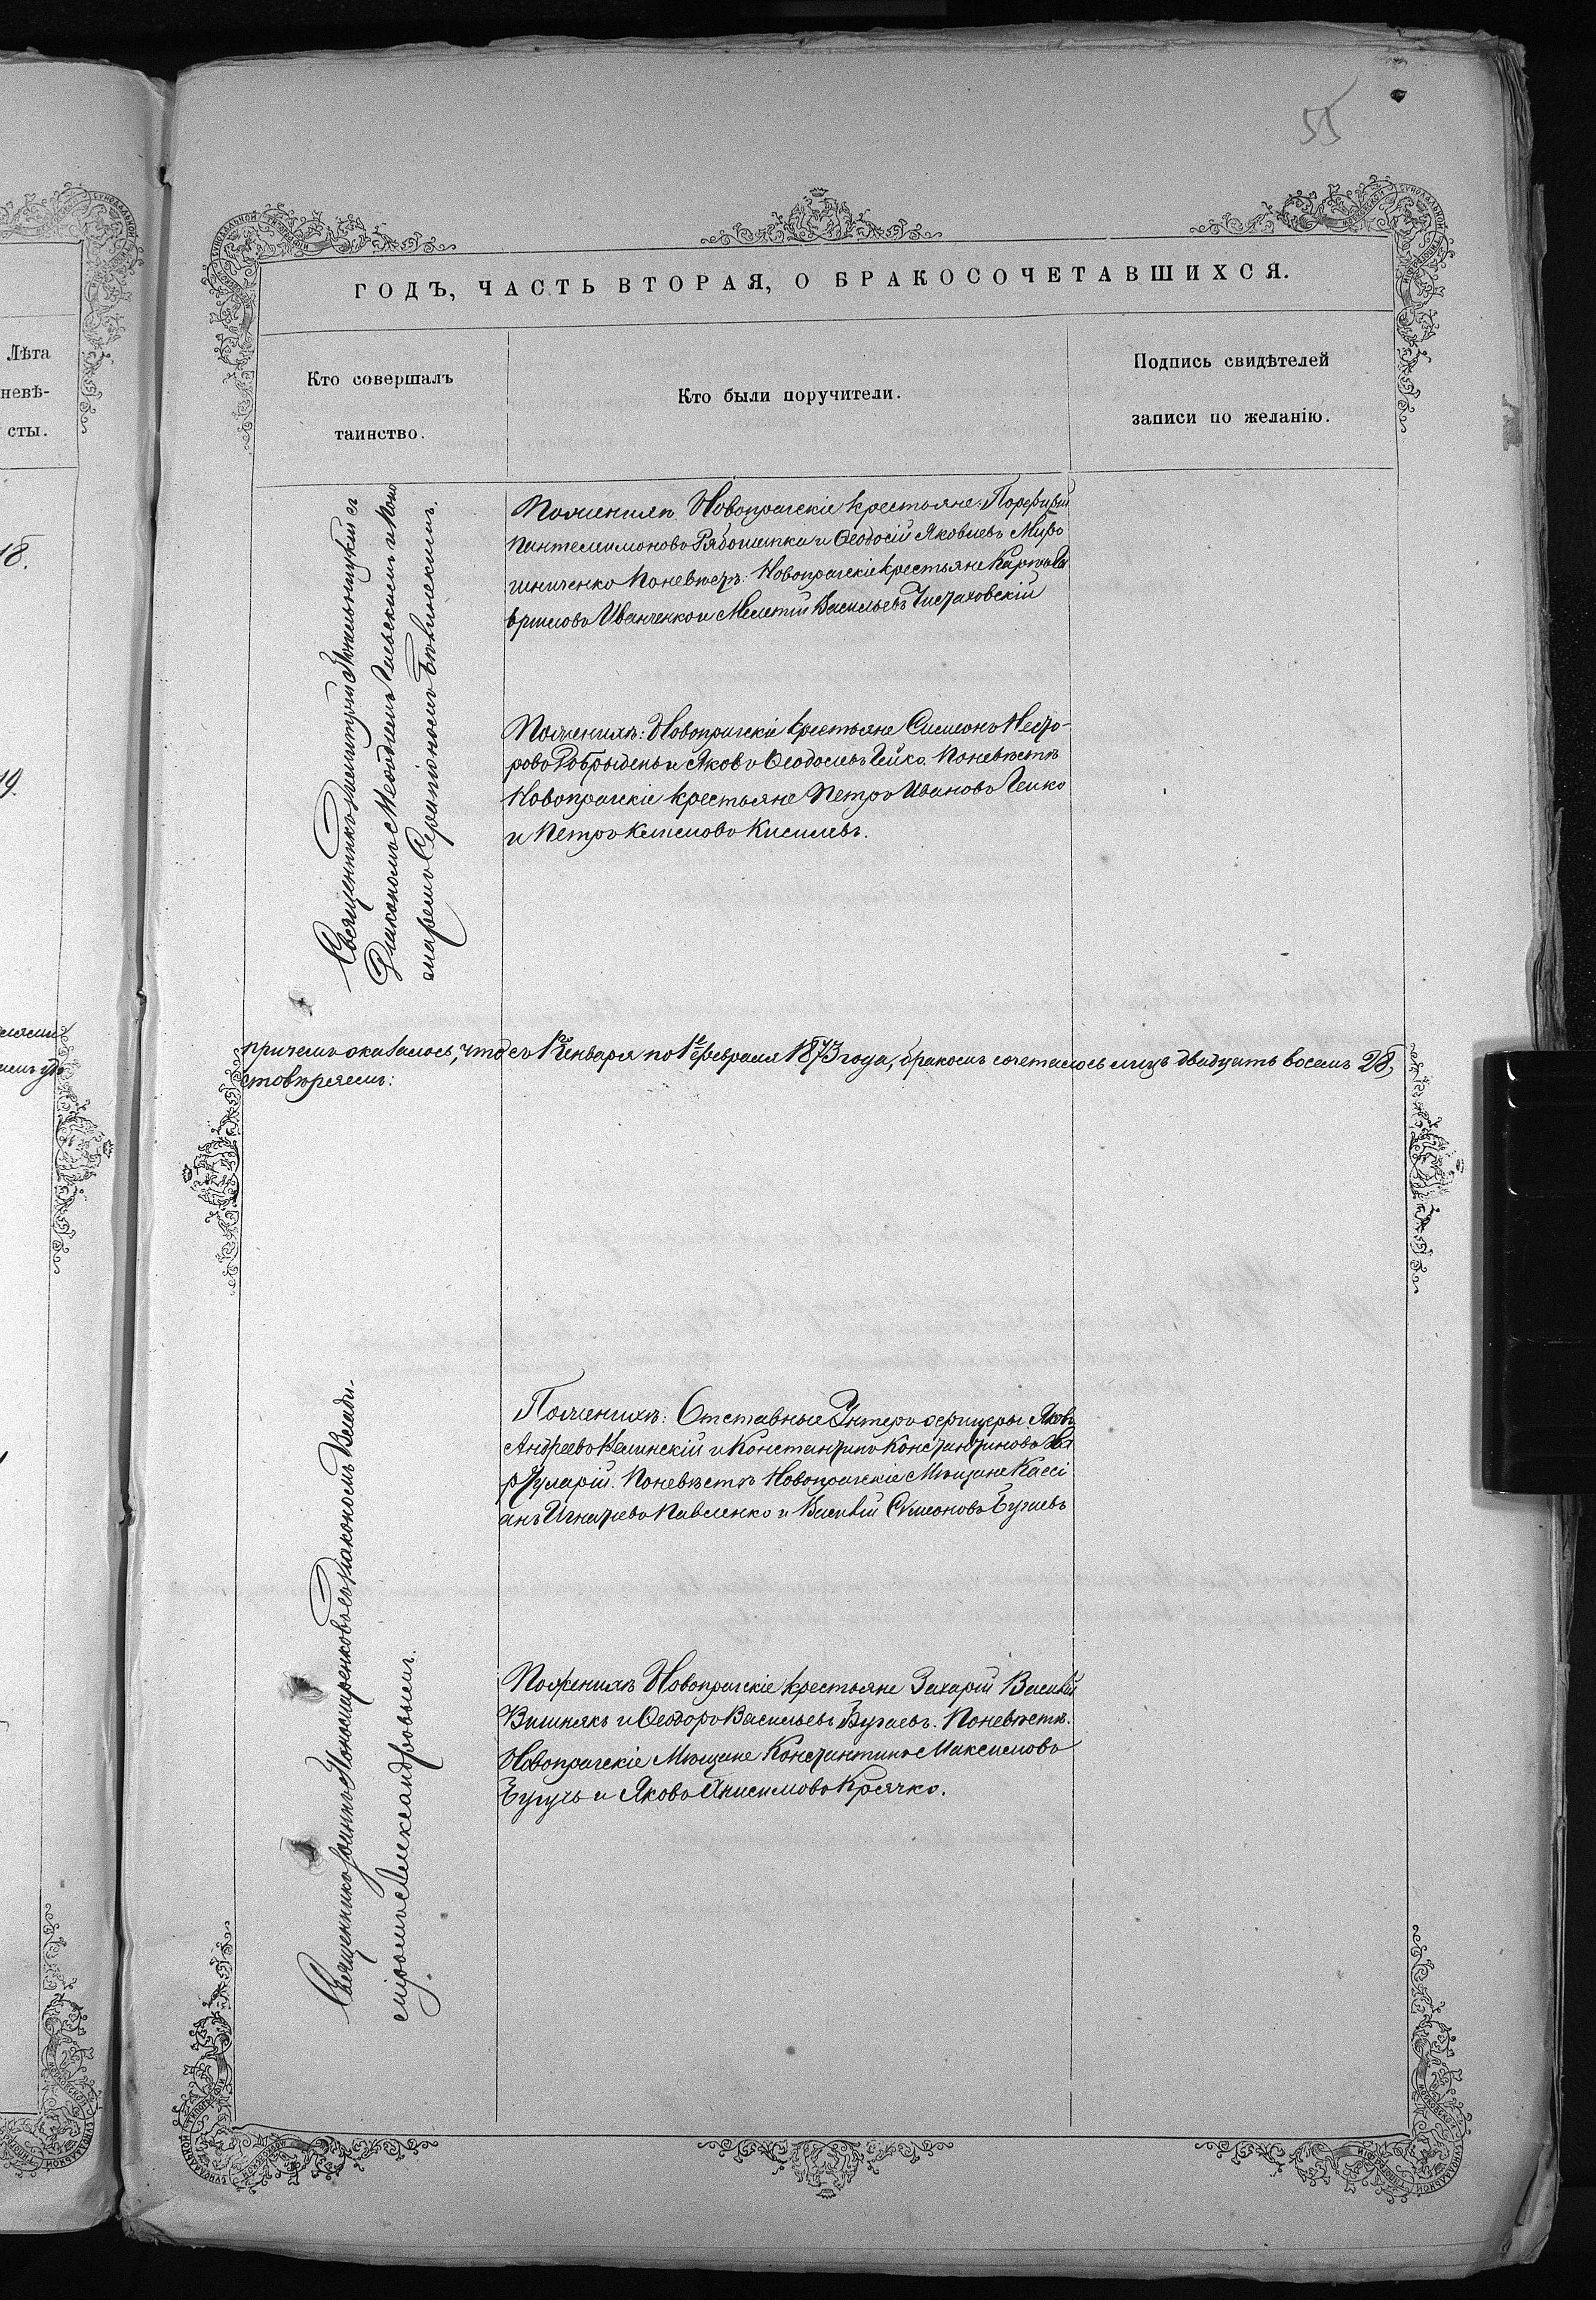 55
ГОДЪ, ЧАСТЬ ВТОРАЯ, О БРАКОСОЧЕТАВШИХСЯ.
Лѣта
невѣ-
сты.
Кто совершалъ
таинство.
Кто были поручители.
Подпись свидѣтелей
записи по желанію.
18.
19.
Священникъ Димитрій съ
Діакономъ Меѳодіемъ и Поно
маремъ Серапіономъ
Поженихѣ Новопрагскіе крестьяне: Порфирій
Пантелимоновъ Рябошапка и Ѳеодосій Яковлевъ Миро
шниченко Поневѣстѣ: Новопрагскіе крестьяне Карпъ
Иванченко и Мелетій Васильевъ
Поженихѣ: Новопрагскіе крестьяне Симеонъ Несто-
ровъ Добрыдень и Яковъ Ѳеодосіевъ Гейко. Поневѣстѣ
Новопрагскіе крестьяне Петръ Ивановъ Гейко
и Петръ Климовъ Киселевъ.
причемъ оказалось, что съ 1го Января по 1е Февраля 1873 года, бракомъ сочеталось лицъ двадцать восемь 28,
стовѣряемъ:
Священникъ Іоаннъ Пономаренковъ съ Діакономъ Влади-
міромъ Александровымъ.
Поженихѣ: Отставные Унтеръ офицеры Яковъ
Андреевъ и Константинъ Константиновъ
Поневѣстѣ Новопрагскіе Мѣщане Кассі
анъ Игнатьевъ Павленко и Василій Симеоновъ Бугаевъ
Поженихѣ Новопрагскіе крестьяне Захарій
Вишнякъ и Ѳеодоръ Васильевъ Бугаевъ. Поневѣстѣ.
Новопрагскіе Мѣщане Константинъ Максимовъ
и Яковъ Анисимовъ Крячко.